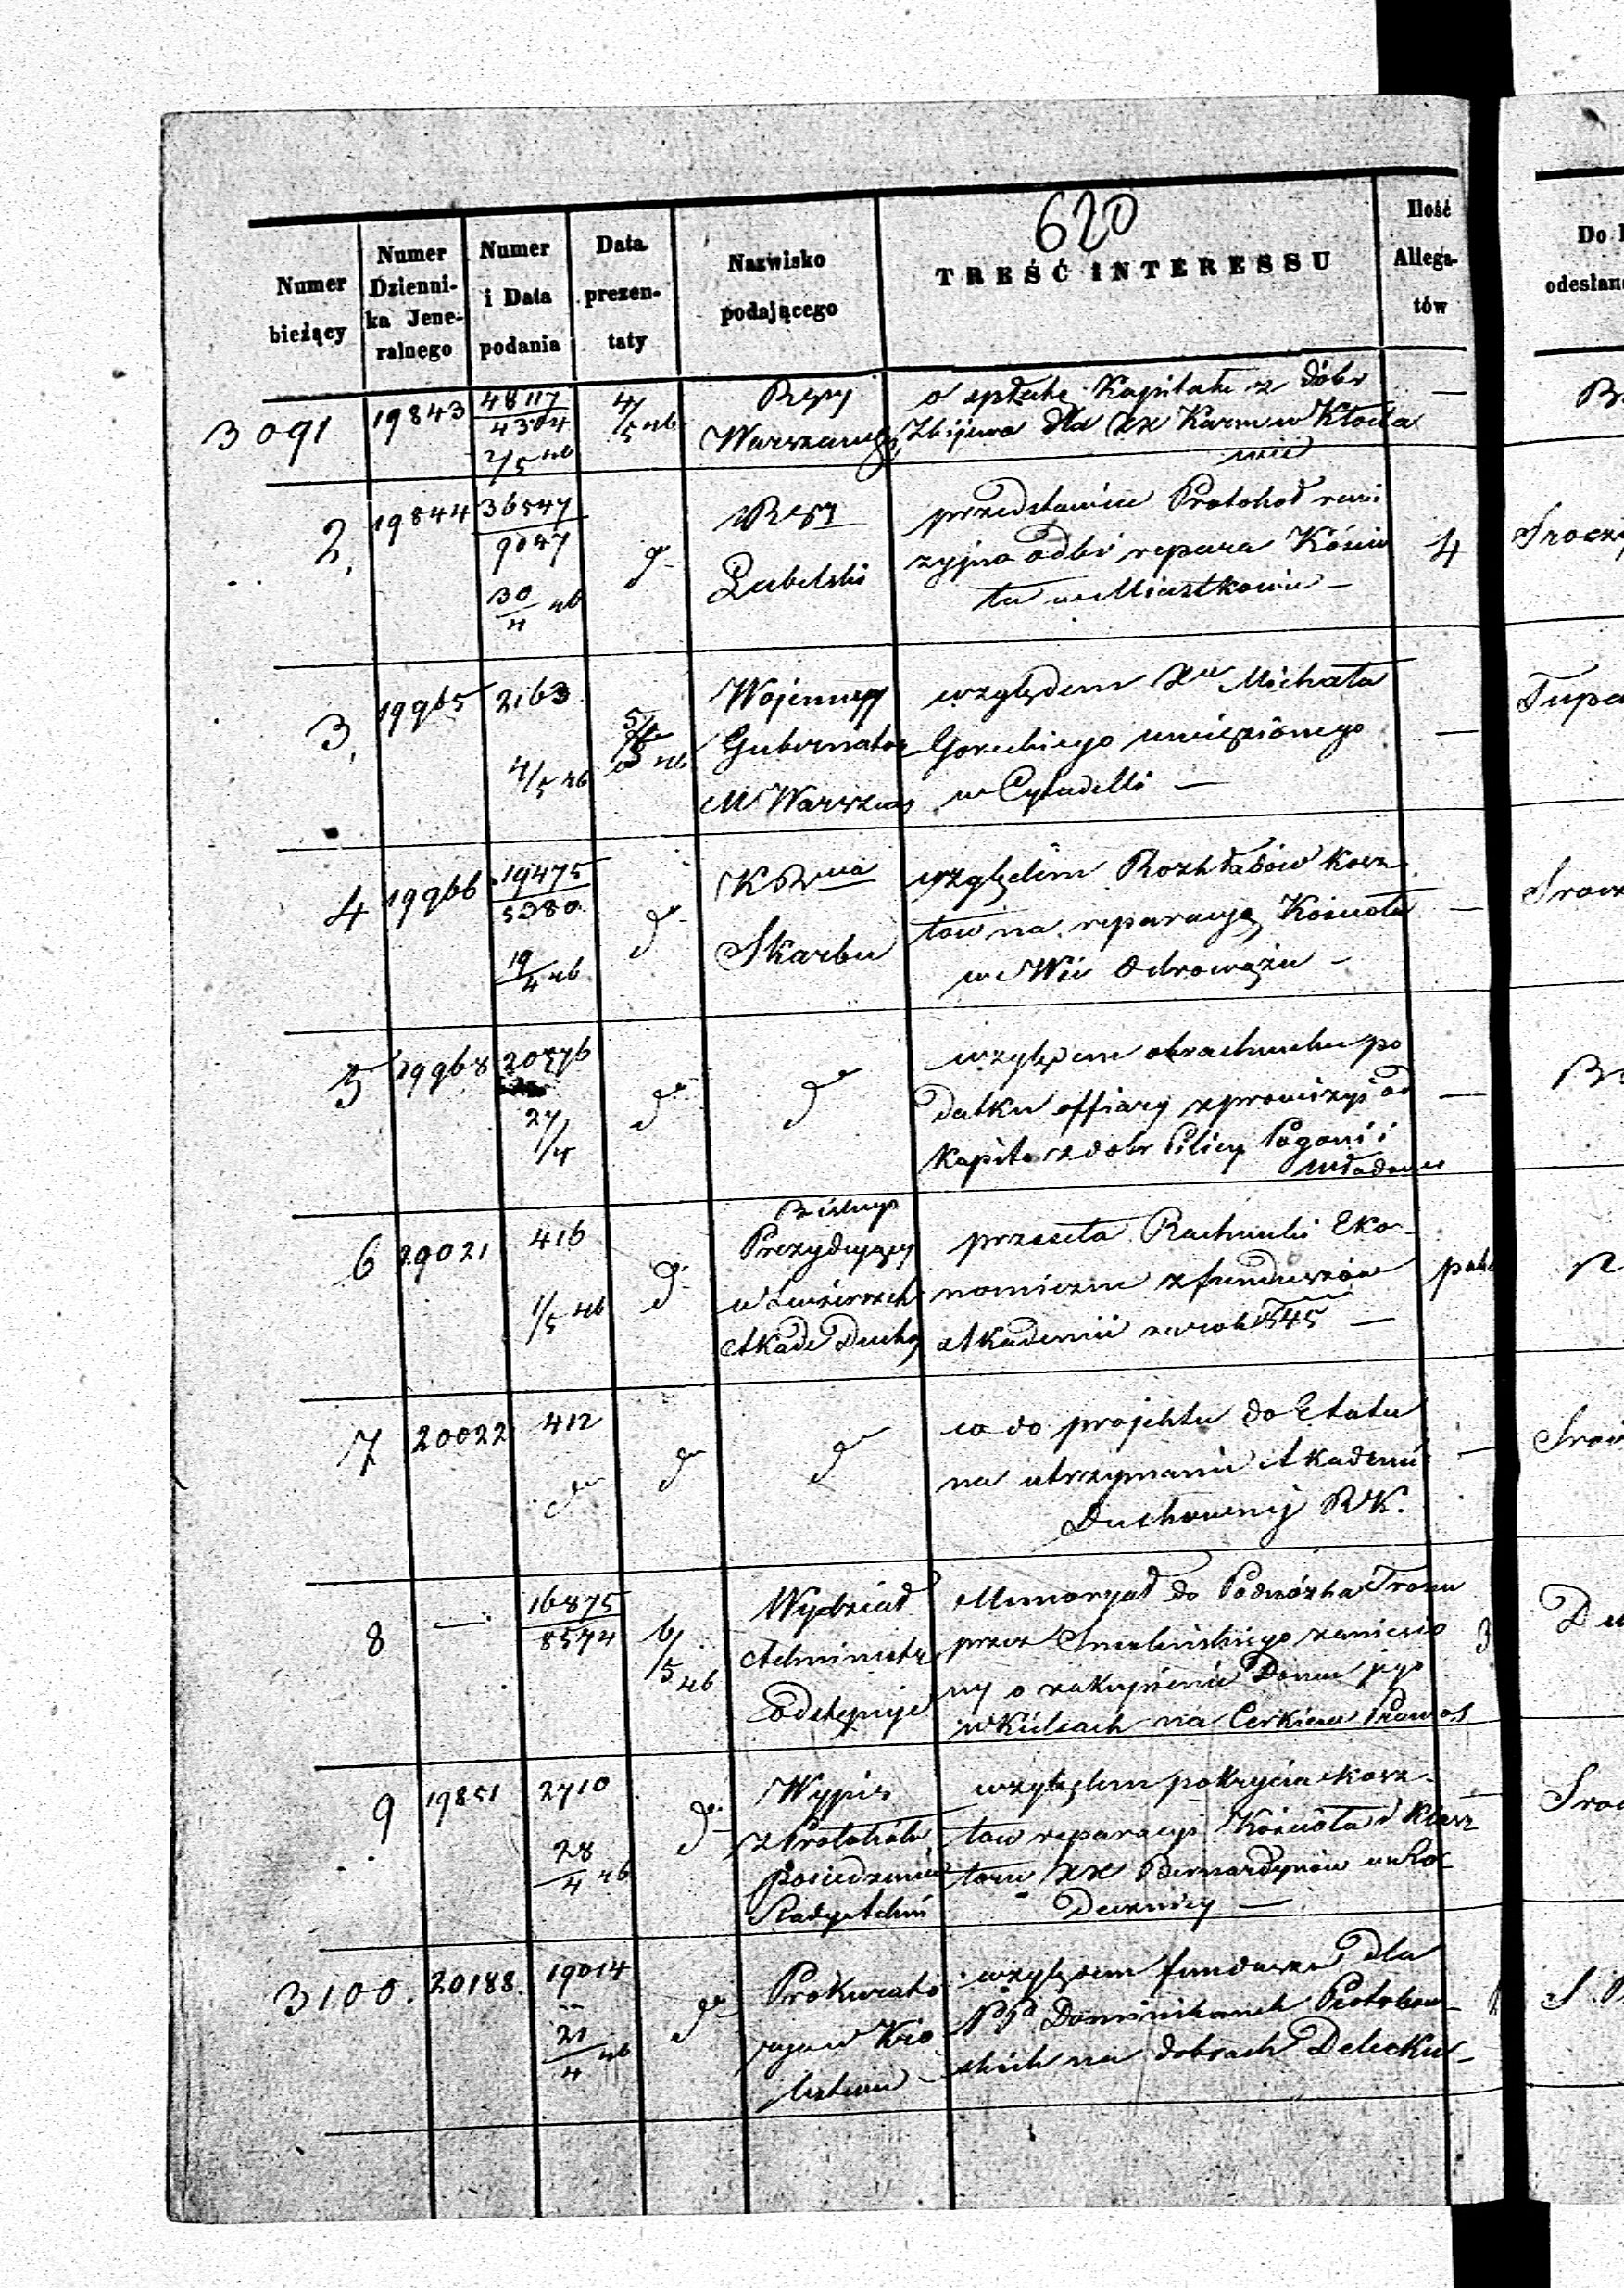 620
Numer bieżący
Numer Dzienni-ka Jene-ralnego
Numer i Data podania
Data prezen-taty
Nazwisko podającego
TREŚĆ INTERESSU
Ilość Allega-tów
Do
odesłan
3091 19843 48117/4304 2/5 46 4/5 46
Warszawsk
o spłatę Kapitału z dóbr
Zbijewa dla XX Karm w Kłoda
wie
2, 19844 36547/9047 30/4 46 do
Lubelski
przedstawia Protokoł rewi
zyjno odbi repara Kościo
ła w Miastkowie —
4
3, 19965 2163 4/5 46 5/5 46
Wojenny
Gubernator
M Warszaw
względem Xa Michała
Goreckiego uwięzionego
w Cytadelli —
—
4 19966 19475/5380 19/4 46 do
Skarbu
względem Rozkładów kosz
tow na reparacyę Kościoła
we Wsi Odrowążu —
—
5 19968 27/4 do
do
względem obrachunku po
datku offiary z prowizyi od
Kapita z dobr Pilicy
—
6 416 1/5 46 do
Biskup
Prezydujący
Akade Ducho
przesyła Rachunki Eko
nomiczne z funduszów
Akademii za rok 1845 —
7 20022 412 do do
do
co do projektu do Etatu
na utrzymanie Akademii
Duchownej RK.
—
8 — 16875/8574 6/5 46
Wydział
Administr
odstępuje
Memoryał do Podnóżka Tronu
przez Smoleńskiego zaniesio
ny o zakupienie Domu jego
w Kielcach na Cerkiew Prawos
3
9 19851 2710 28/4 46 do
Wypis
z Protokółu
posiedzenia
Rady Admi
względem pokrycia kosz
tow reparacyi Kościoła i Klasz
toru XX Bernardynów
—
3100. 20188. 19014 21/4 46 do
Prokurato
rya w Kró
lestwie
względem funduszu dla
PP Dominikanek Piotrkow
skich na dobrach